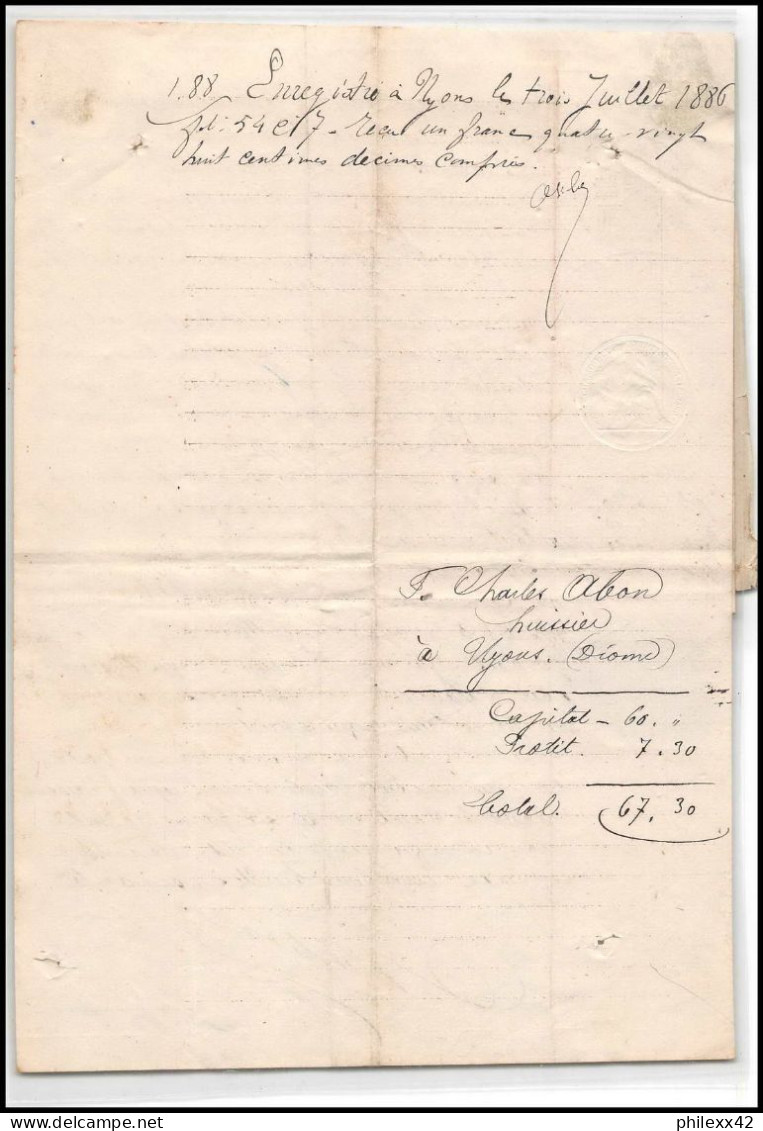 1.88 Enregistré à Nyons le trois Juillet 1886
fol: 54 C: 7 - reçu un franc quatre-vingt
huit centimes decimes compris.
T. Charles Abon
huissier
à Nyons. (Drome)
Capital - 60. "
Protêt. 7.30
Total. 67,30
delcampe.net
philexx42